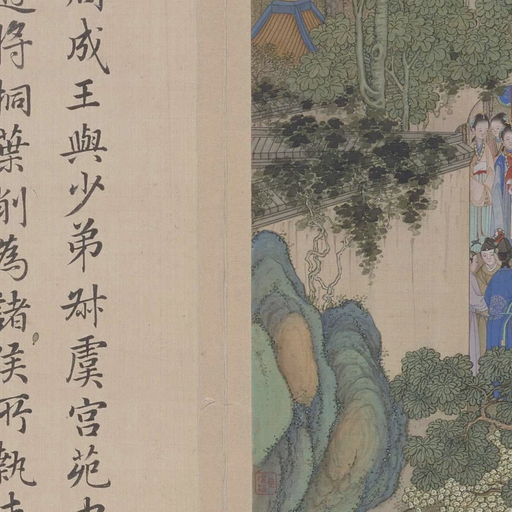 周成王與少弟叔虞宮苑中
將桐葉削為諸侯所執圭